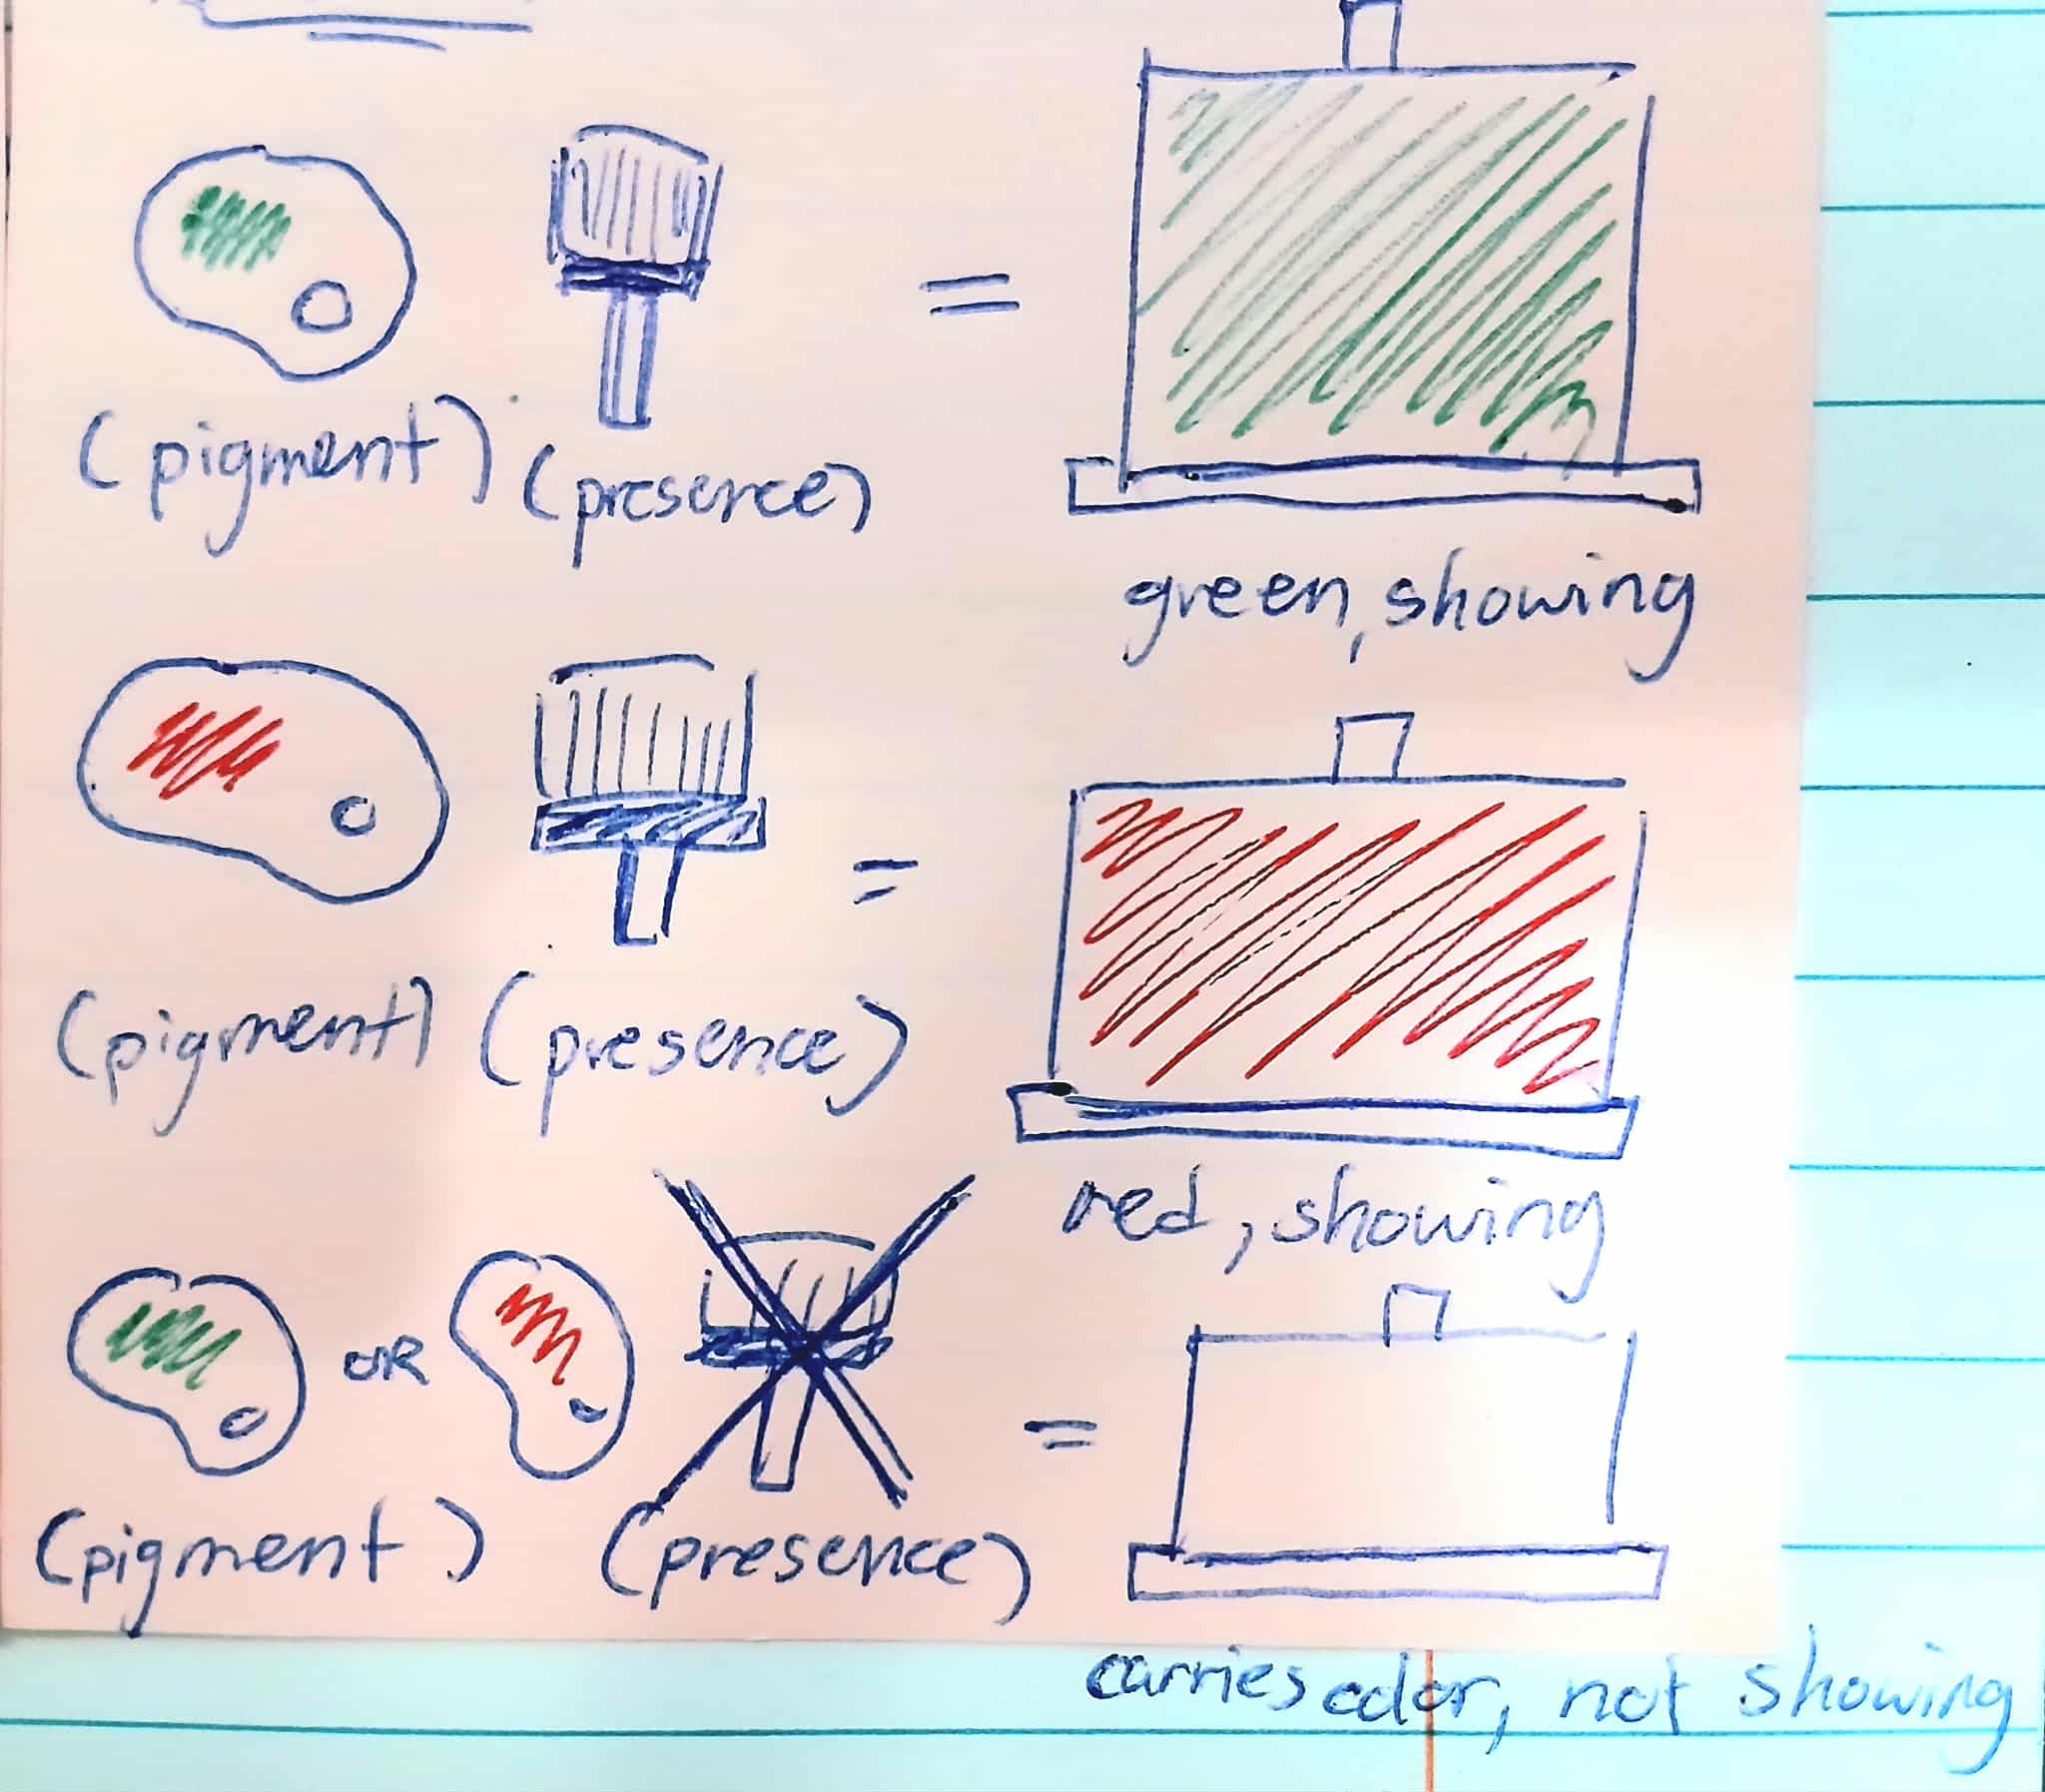 (pigment) (presence)
=
green, showing
(pigment) (presence)
=
red, showing
OR
=
(pigment) (presence)
carries color, not showing